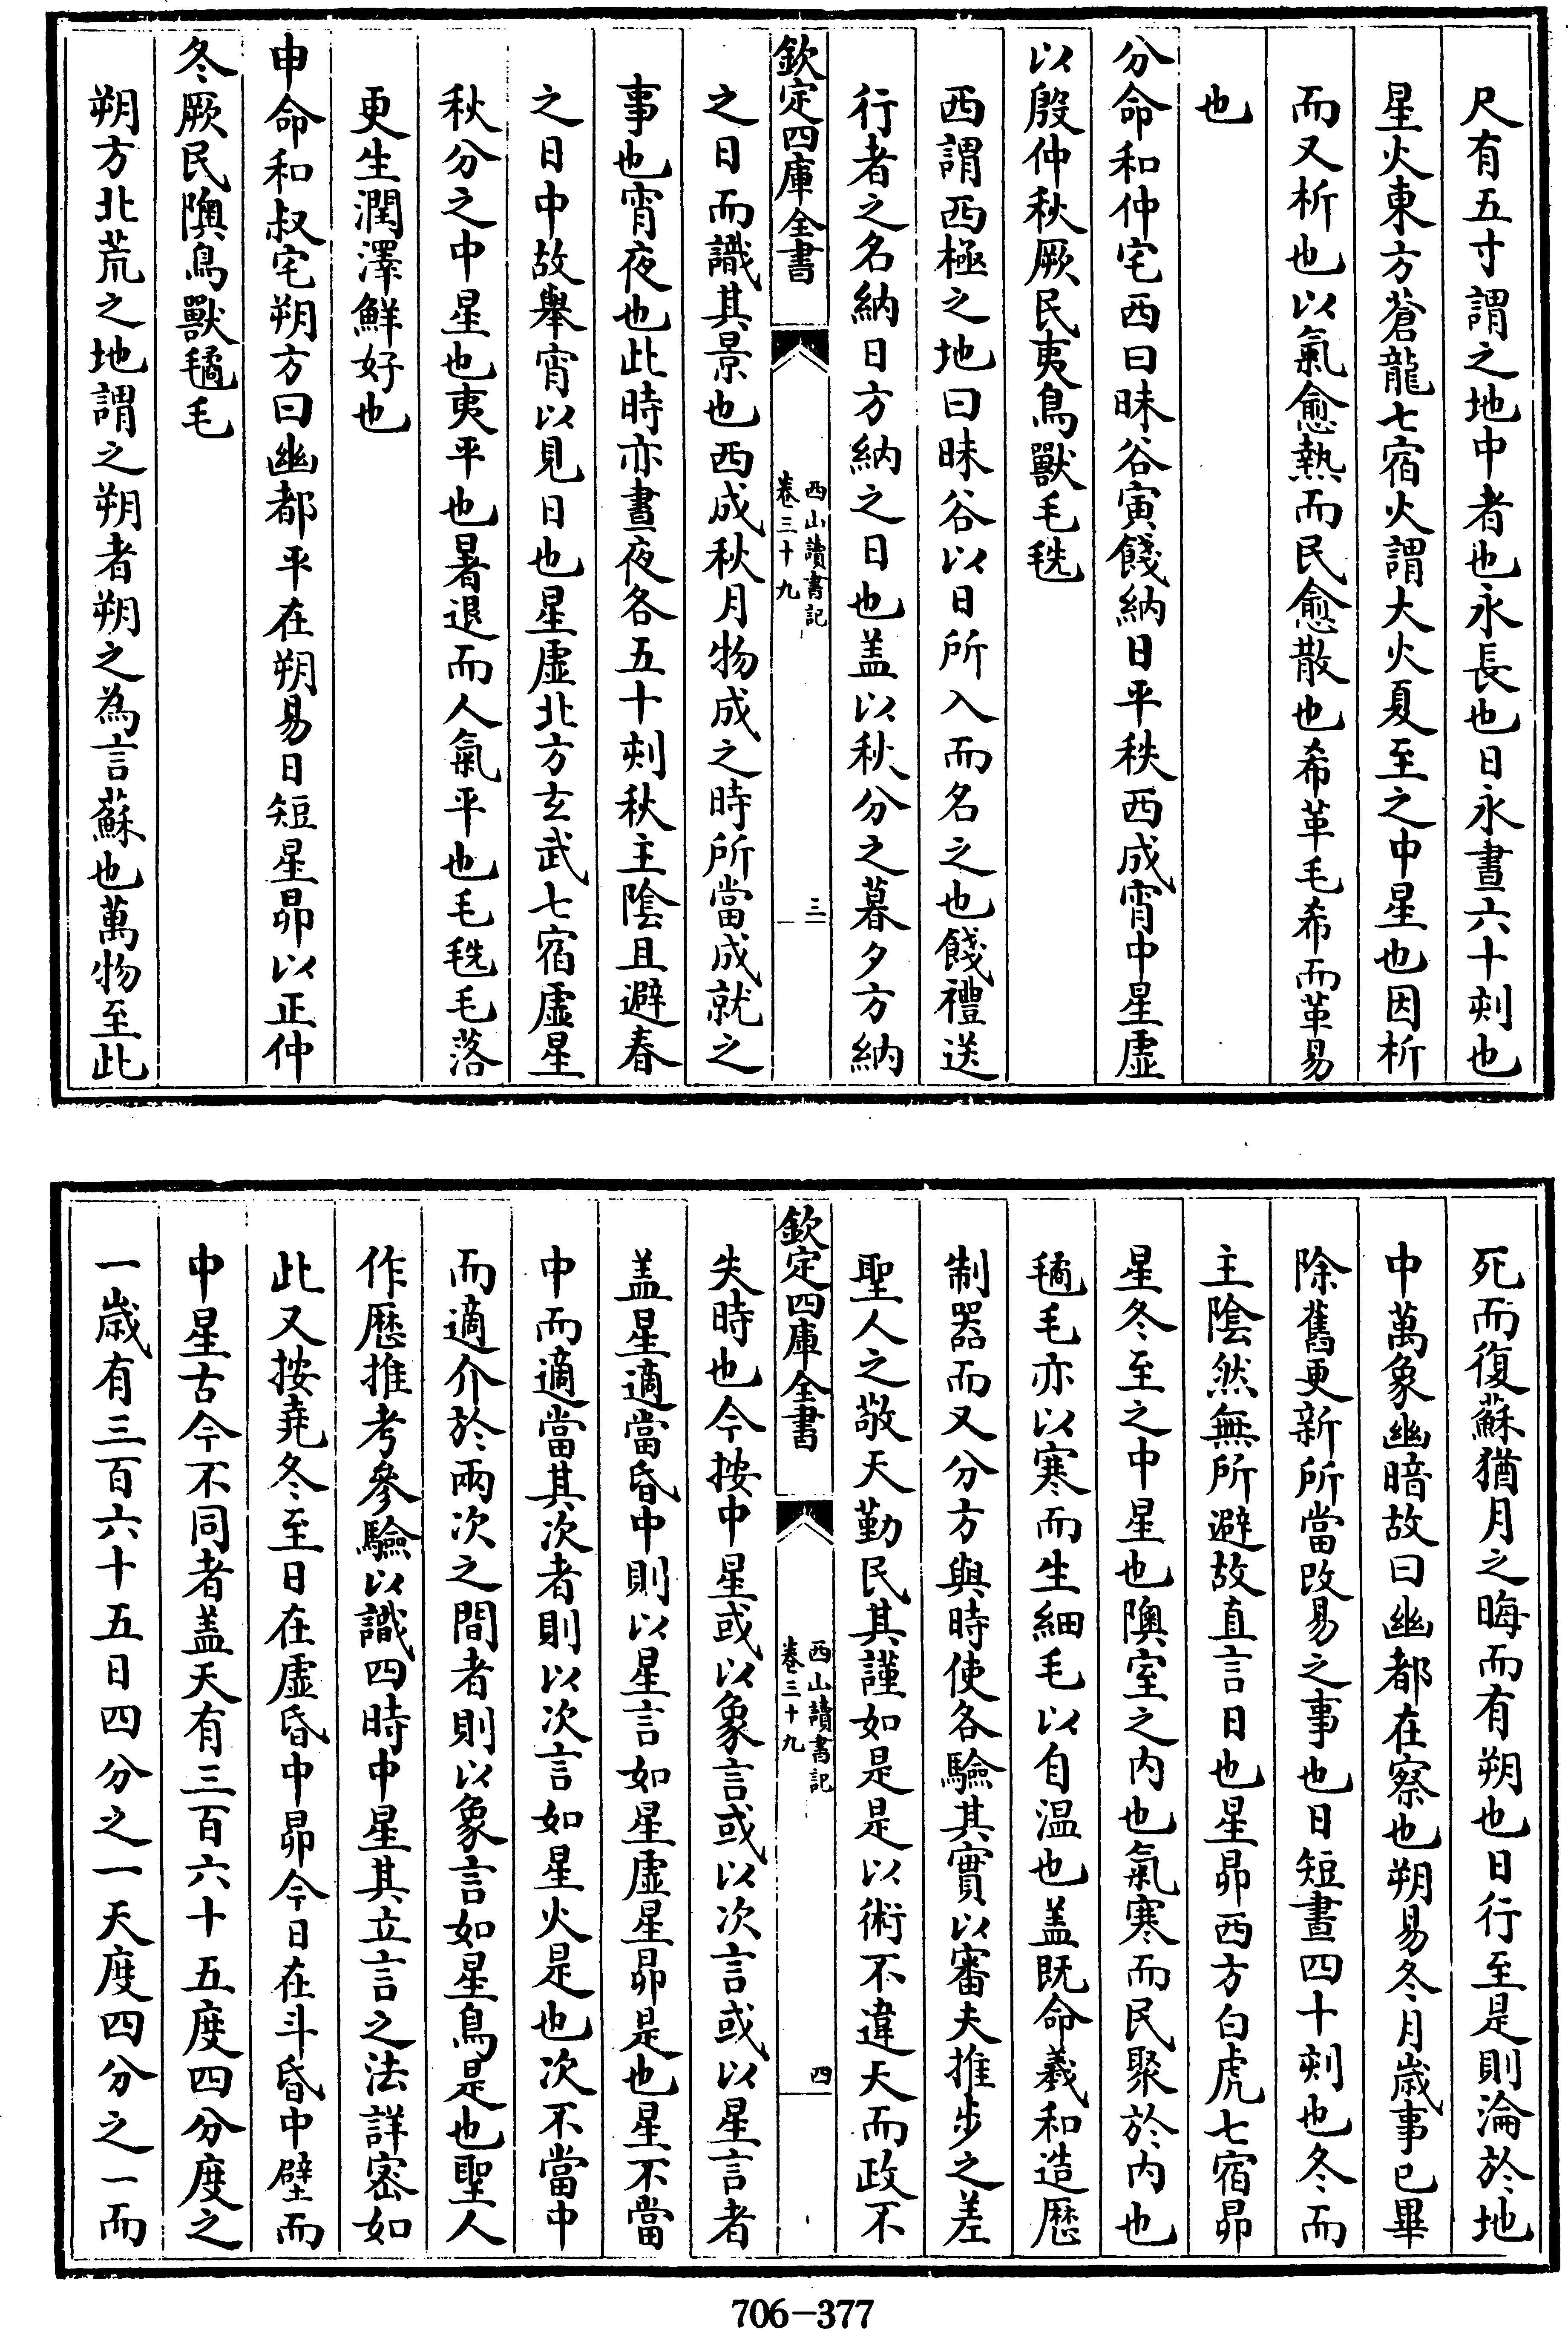 尺有五寸謂之地中者也永長也日永晝六十刻也
星火東方蒼龍七宿火謂大火夏至之中星也因析
而又析也以氣愈熱而民愈散也希革毛希而革易
也
分命和仲宅西曰昧谷寅餞納日平秩西成宵中星虛
以殷仲秋厥民夷鳥獸毛毨
西謂西極之地曰昧谷以日所入而名之也餞禮送
行者之名納日方納之日也盖以秋分之暮夕方納
欽定四庫全書
西山讀書記
卷三十九
三
之日而識其景也西成秋月物成之時所當成就之
事也宵夜也此時亦晝夜各五十刻秋主陰且避春
之日中故舉宵以見日也星虛北方玄武七宿虛星
秋分之中星也夷平也暑退而人氣平也毛毨毛落
更生潤澤鮮好也
申命和叔宅朔方曰幽都平在朔易日短星昴以正仲
冬厥民隩鳥獸氄毛
朔方北荒之地謂之朔者朔之為言蘇也萬物至此
死而復蘇猶月之晦而有朔也日行至是則淪於地
中萬象幽暗故曰幽都在察也朔易冬月歳事已畢
除舊更新所當改易之事也日短晝四十刻也冬而
主陰然無所避故直言日也星昴西方白虎七宿昴
星冬至之中星也隩室之内也氣寒而民聚於内也
氄毛亦以寒而生細毛以自温也盖既命羲和造厯
制器而又分方與時使各驗其實以審夫推步之差
聖人之敬天勤民其謹如是是以術不違天而政不
欽定四庫全書
西山讀書記
卷三十九
四
失時也今按中星或以象言或以次言或以星言者
盖星適當昏中則以星言如星虛星昴是也星不當
中而適當其次者則以次言如星火是也次不當中
而適介於兩次之間者則以象言如星鳥是也聖人
作厯推考參驗以識四時中星其立言之法詳密如
此又按堯冬至日在虛昏中昴今日在斗昏中壁而
中星古今不同者盖天有三百六十五度四分度之
一歳有三百六十五日四分之一天度四分之一而
706-377